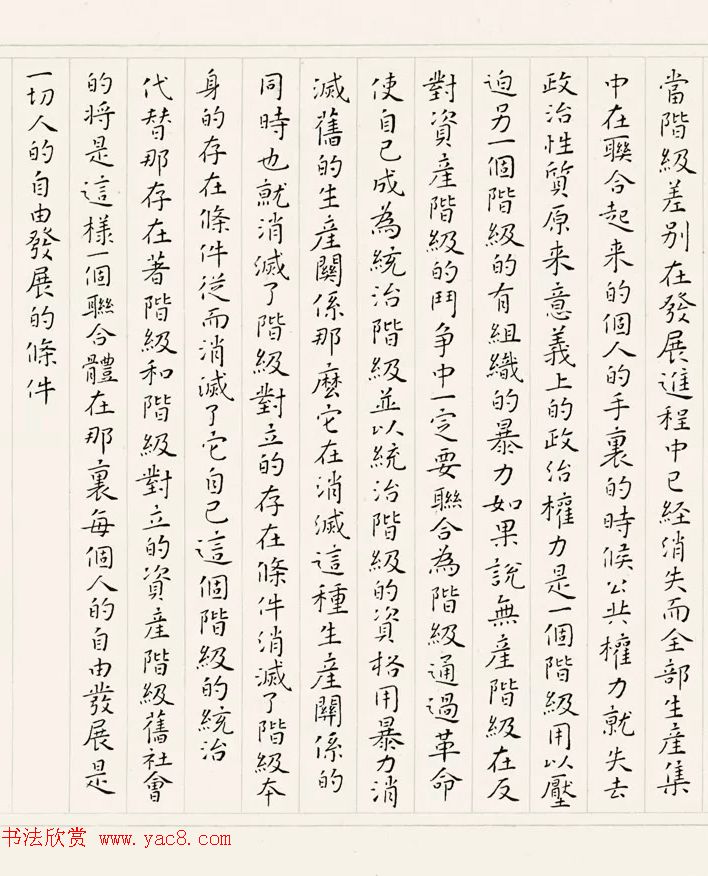 當階級差别在發展進程中已經消失而全部生產集
中在聯合起来的個人的手裏的時候公共權力就失去
政治性質原来意義上的政治權力是一個階級用以壓
迫另一個階級的有組織的暴力如果說無產階級在反
對資産階級的鬥争中一定要聯合為階級通過革命
使自己成為統治階級並以統治階級的資格用暴力消
滅舊的生産關係那麼它在消滅這種生産關係的
同時也就消滅了階級對立的存在條件消滅了階級本
身的存在條件從而消滅了它自己這個階級的統治
代替那存在著階級和階級對立的資産階級舊社會
的将是這樣一個聯合體在那裏每個人的自由發展是
一切人的自由發展的條件
书法欣赏 www.yac8.com